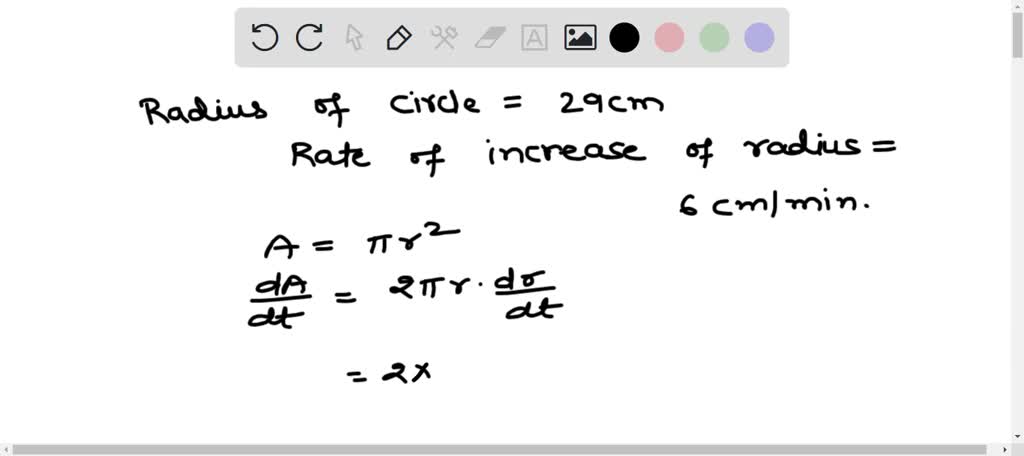 Radius of circle = 29cm
Rate of increase of radius =
6 cm/min.
A = πr²
dA/dt = 2πr · dr/dt
= 2×